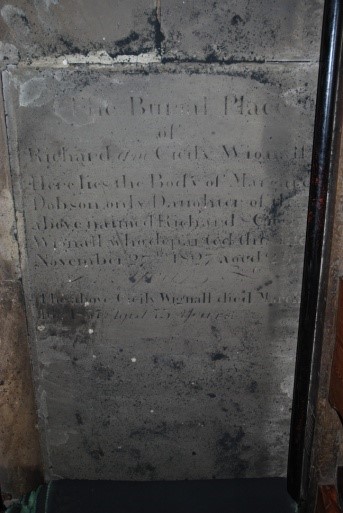 The Burial Place
of
Richard and Cicily Wignall
Here lies the Body of Margaret
Dobson only Daughter of
above named Richard & Ci
Wignall who departed this
November 27th 1807 aged
The above Cicily Wignall died
aged 73 Years